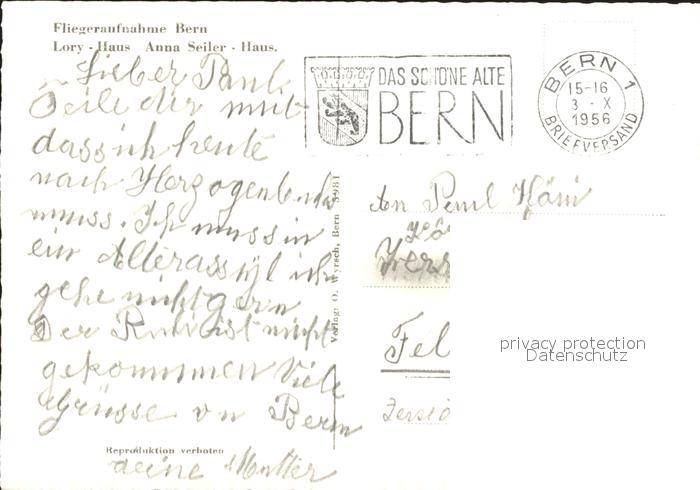 Fliegeraufnahme Bern
Lory - Haus Anna Seiler - Haus.
Lieber Paul
Teile dir mit
dass ich heute
nach Herzogenbuchs
muss. Ich muss in
ein Alterassyl ich
gehe nicht gern
Der Rudi ist nicht
gekommen Viele
Grüsse vn Bern
deine Mutter
Reproduktion verboten
Verlag: O. Wyrsch, Bern 5981
DAS SCHÖNE ALTE
BERN
BERN 1
15-16
3 - X
1956
BRIEFVERSAND
An Paul
Fel
privacy protection
Datenschutz